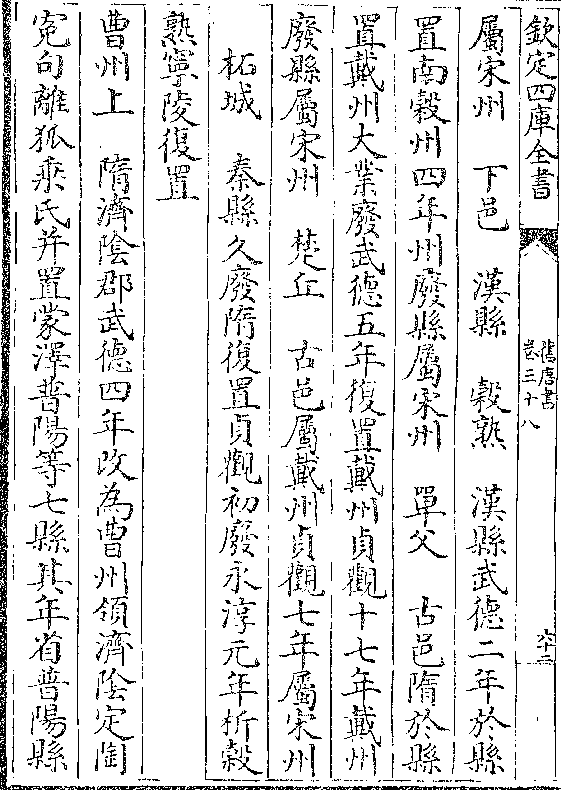 欽定四庫全書
舊唐書
卷三十八
六十三
屬宋州　下邑　漢縣　穀熟　漢縣武德二年於縣
置南穀州四年州廢縣屬宋州　單父　古邑隋於縣
置戴州大業廢武德五年復置戴州貞觀十七年戴州
廢縣屬宋州　楚丘　古邑屬戴州貞觀七年屬宋州
柘城　秦縣久廢隋復置貞觀初廢永淳元年析穀
熟寧陵復置
曹州上　隋濟陰郡武德四年改為曹州領濟陰定陶
寃句離狐乘氏并置蒙澤普陽等七縣其年省普陽縣